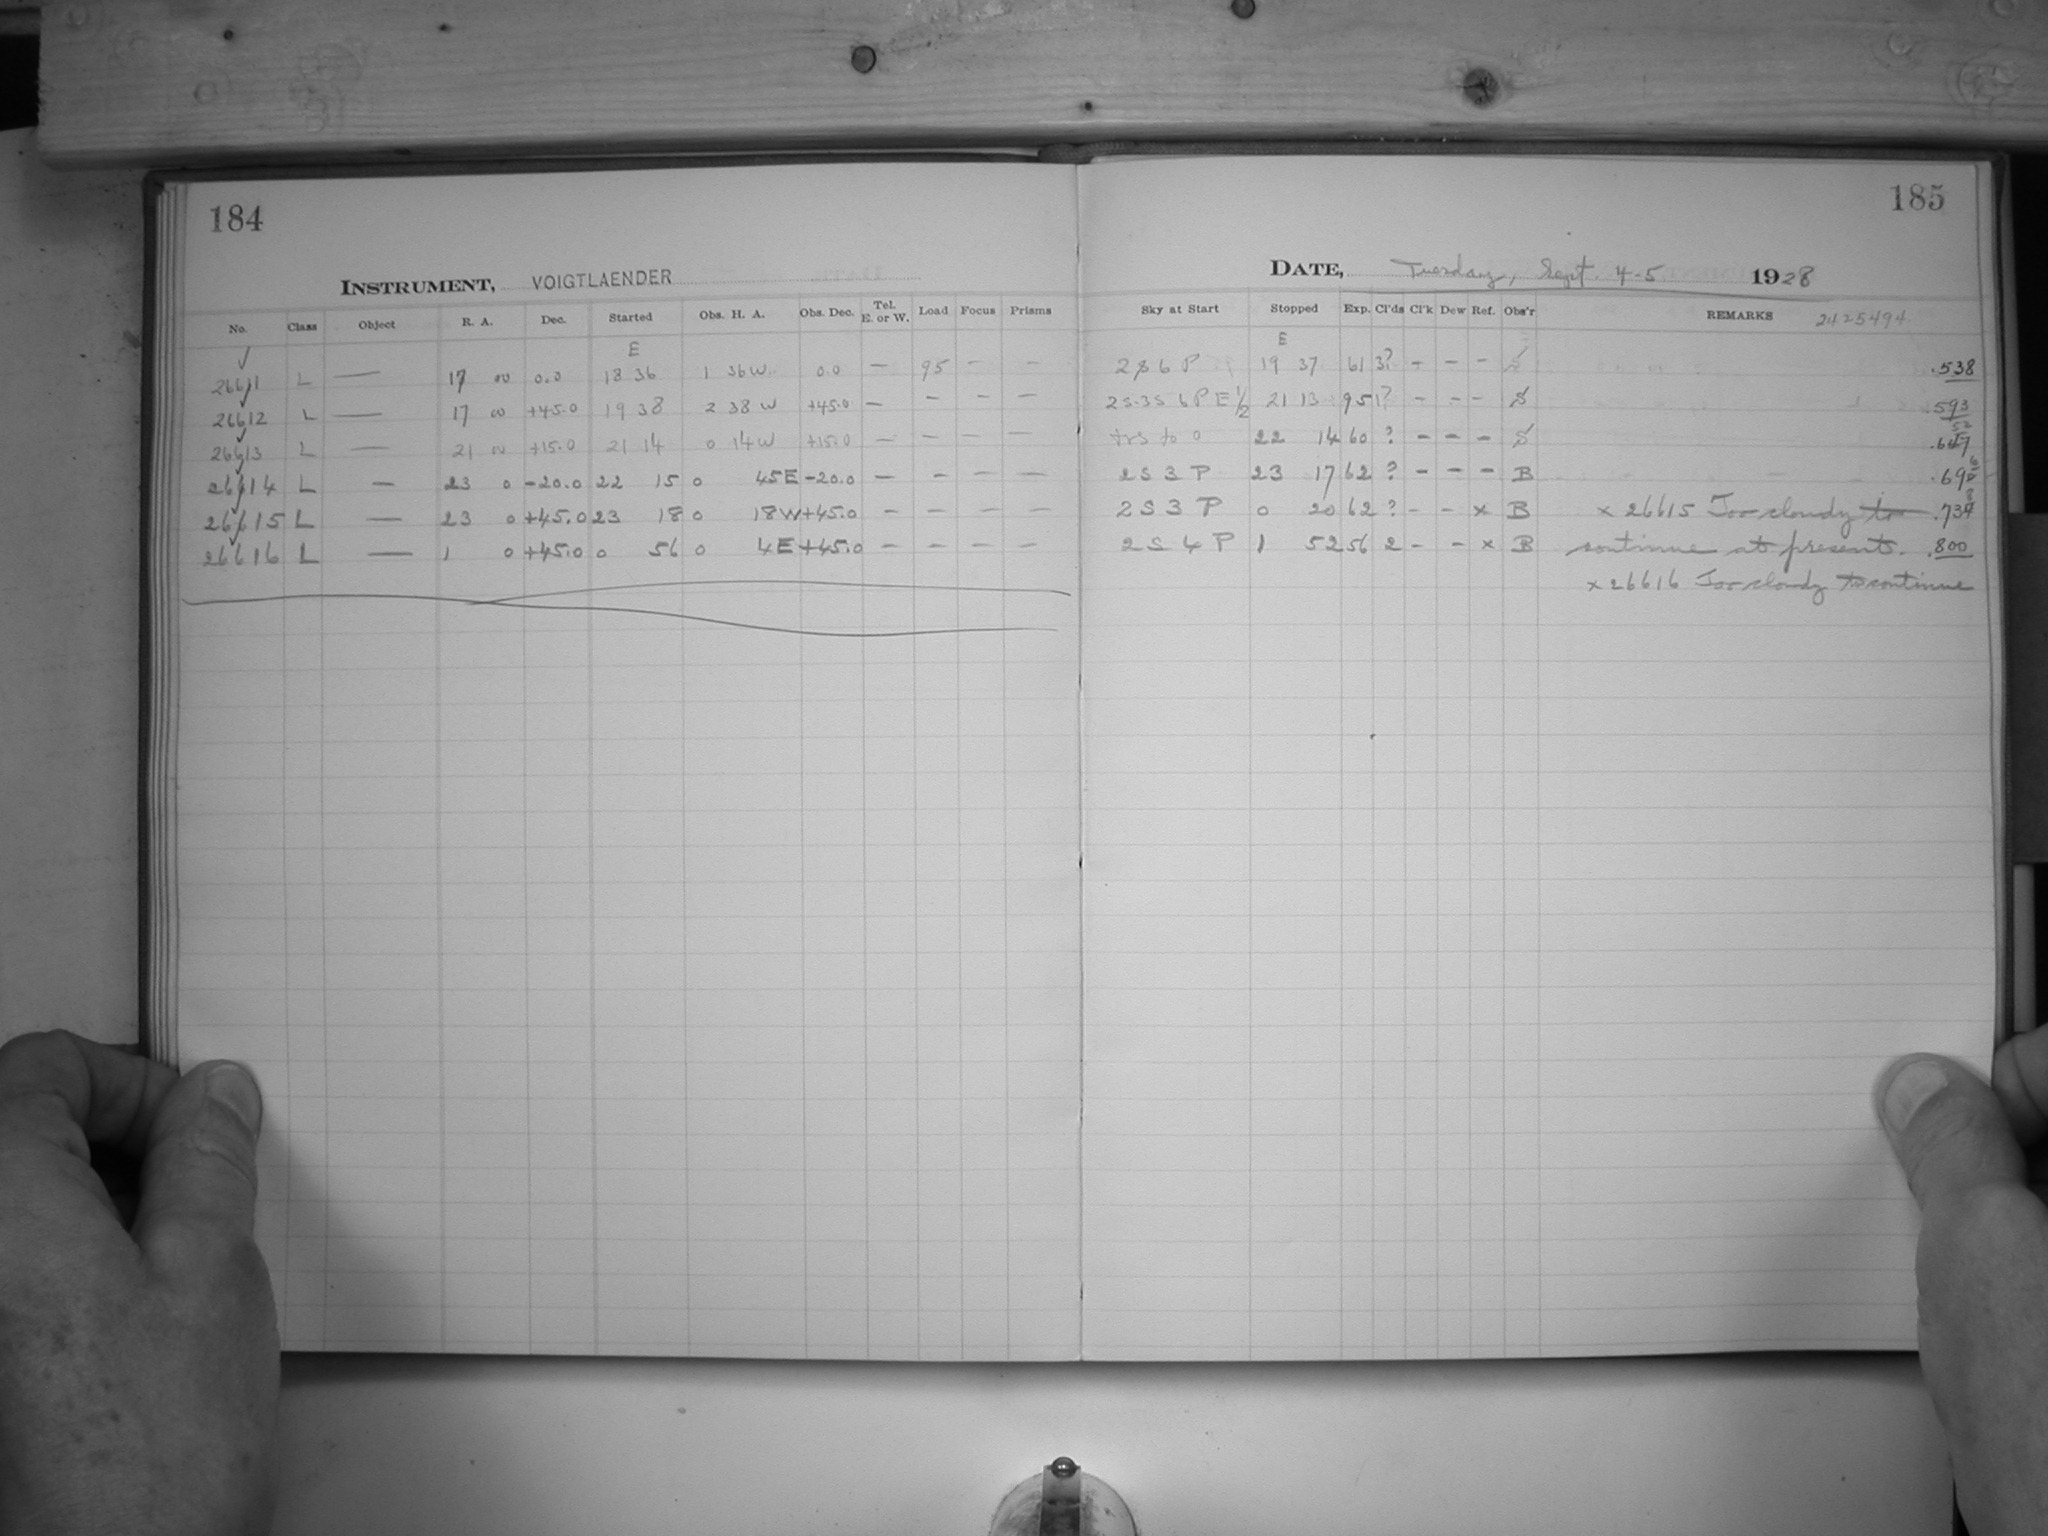 184
185
INSTRUMENT, VOIGTLAENDER
DATE, Tuesday, Sept. 4-5 1928
No. Class Object R. A. Dec. Started Obs. H. A. Obs. Dec. Tel. E. or W. Load Focus Prisms Sky at Start Stopped Exp. Cl'ds Cl'k Dew Ref. Obs'r REMARKS 2425494
E E
26611 L — 17 00 0.0 18 36 1 36W 0.0 — 95 — — 2S 6 P 19 37 61 3? - - - S .538
26612 L — 17 00 +45.0 19 38 2 38 W +45.0 — — — — 2S-3S 6P E 1/2 21 13 95 1? - - - S .593
26613 L — 21 00 +15.0 21 14 0 14W +15.0 — — — — trs to 0 22 14 60 ? - - - S
26614 L — 23 0 -20.0 22 15 0 45E -20.0 — — — — 2S 3 P 23 17 62 ? - - - B
26615 L — 23 0 +45.0 23 18 0 18W +45.0 — — — — 2S 3 P 0 20 62 ? - - x B x 26615 Too cloudy to
26616 L — 1 0 +45.0 0 56 0 4E +45.0 — — — — 2S 4 P 1 52 56 2 - - x B continue at present. .800
x 26616 Too cloudy to continue